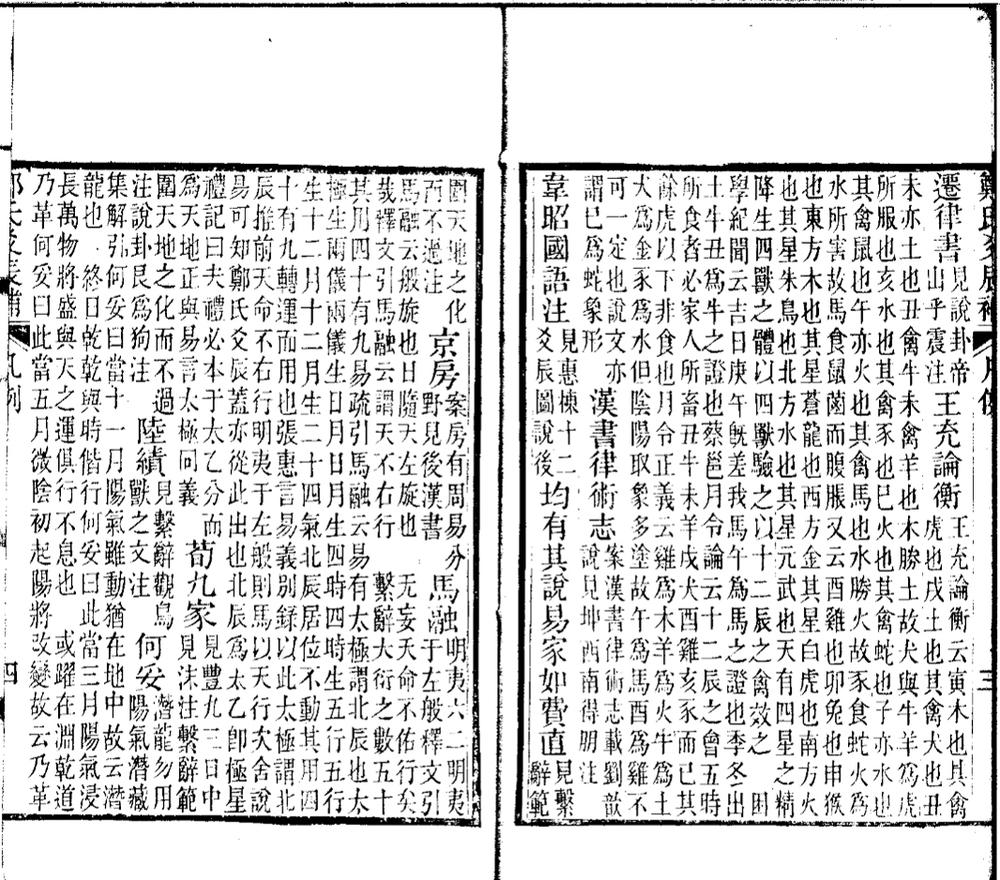 鄭氏爻辰補 凡例 三
遷律書
見說卦帝
出乎震注
王充論衡
王充論衡云寅木也其禽
虎也戌土也其禽犬也丑
未亦土也丑禽牛未禽羊也木勝土故犬與牛羊爲虎
所服也亥水也其禽豕也巳火也其禽蛇也子亦水也
其禽鼠也午亦火也其禽馬也水勝火故豕食蛇火爲
水所害故馬食鼠菌而腹脹又云酉雞也卯兔也申猴
也東方木也其星蒼龍也西方金其星白虎也南方火
也其星朱鳥也北方水也其星元武也天有四星之精
降生四獸之體以四獸驗之以十二辰之禽效之 困
學紀聞云吉日庚午旣差我馬午爲馬之證也季冬出
土牛丑爲牛之證也蔡邕月令論云十二辰之會五時
所食者必家人所畜丑牛未羊戌犬酉雞亥豕而已其
餘虎以下非食也月令正義云雞爲木羊爲火牛爲土
犬爲金豕爲水但陰陽取象多塗故午爲馬酉爲雞不
可一定也說文亦
謂巳爲蛇象形
漢書律術志
案漢書律術志載劉歆
說見坤西南得朋注
韋昭國語注
見惠棟十二
爻辰圖說後
均有其說易家如費直
見繫
辭範
圍天地之化
而不過注
京房
案房有周易分
野見後漢書
馬融
明夷六二明夷
于左般釋文引
馬融云般旋也日隨天左旋也 无妄天命不佑行矣
哉釋文引馬融云謂天不右行 繫辭大衍之數五十
其用四十有九易疏引馬融云易有太極謂北辰也太
極生兩儀兩儀生日月日月生四時四時生五行五行
生十二月十二月生二十四氣北辰居位不動其用四
十有九轉運而用也張惠言易義別錄以此太極謂北
辰推前天命不右行明夷于左般則馬以天行次舍說
易可知鄭氏爻辰蓋亦從此出也北辰爲太乙卽極星
禮記曰夫禮必本于太乙分而
爲天地正與易言太極同義
荀九家
見豐九三日中
見沬注繫辭範
圍天地之化而不過
注說卦艮爲狗注
陸績
見繫辭觀鳥
獸之文注
何妥
潛龍勿用
陽氣潛藏
集解引何妥曰當十一月陽氣雖動猶在地中故云潛
龍也 終日乾乾與時偕行何妥曰此當三月陽氣浸
長萬物將盛與天之運俱行不息也 或躍在淵乾道
乃革何妥曰此當五月微陰初起陽將改變故云乃革
鄭氏爻辰補 凡例 四